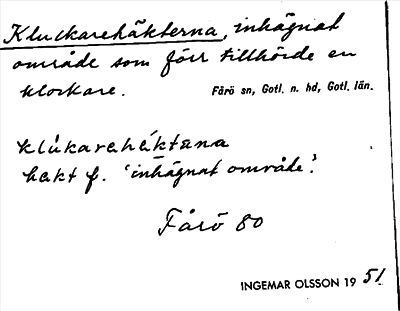 Kluckarehäkterna, inhägnat
område som förr tillhörde en
klockare. Fårö sn, Gotl. n. hd, Gotl. län.
klukarehäktana
hakt f. 'inhägnat område'.
Fårö 80
INGEMAR OLSSON 1951